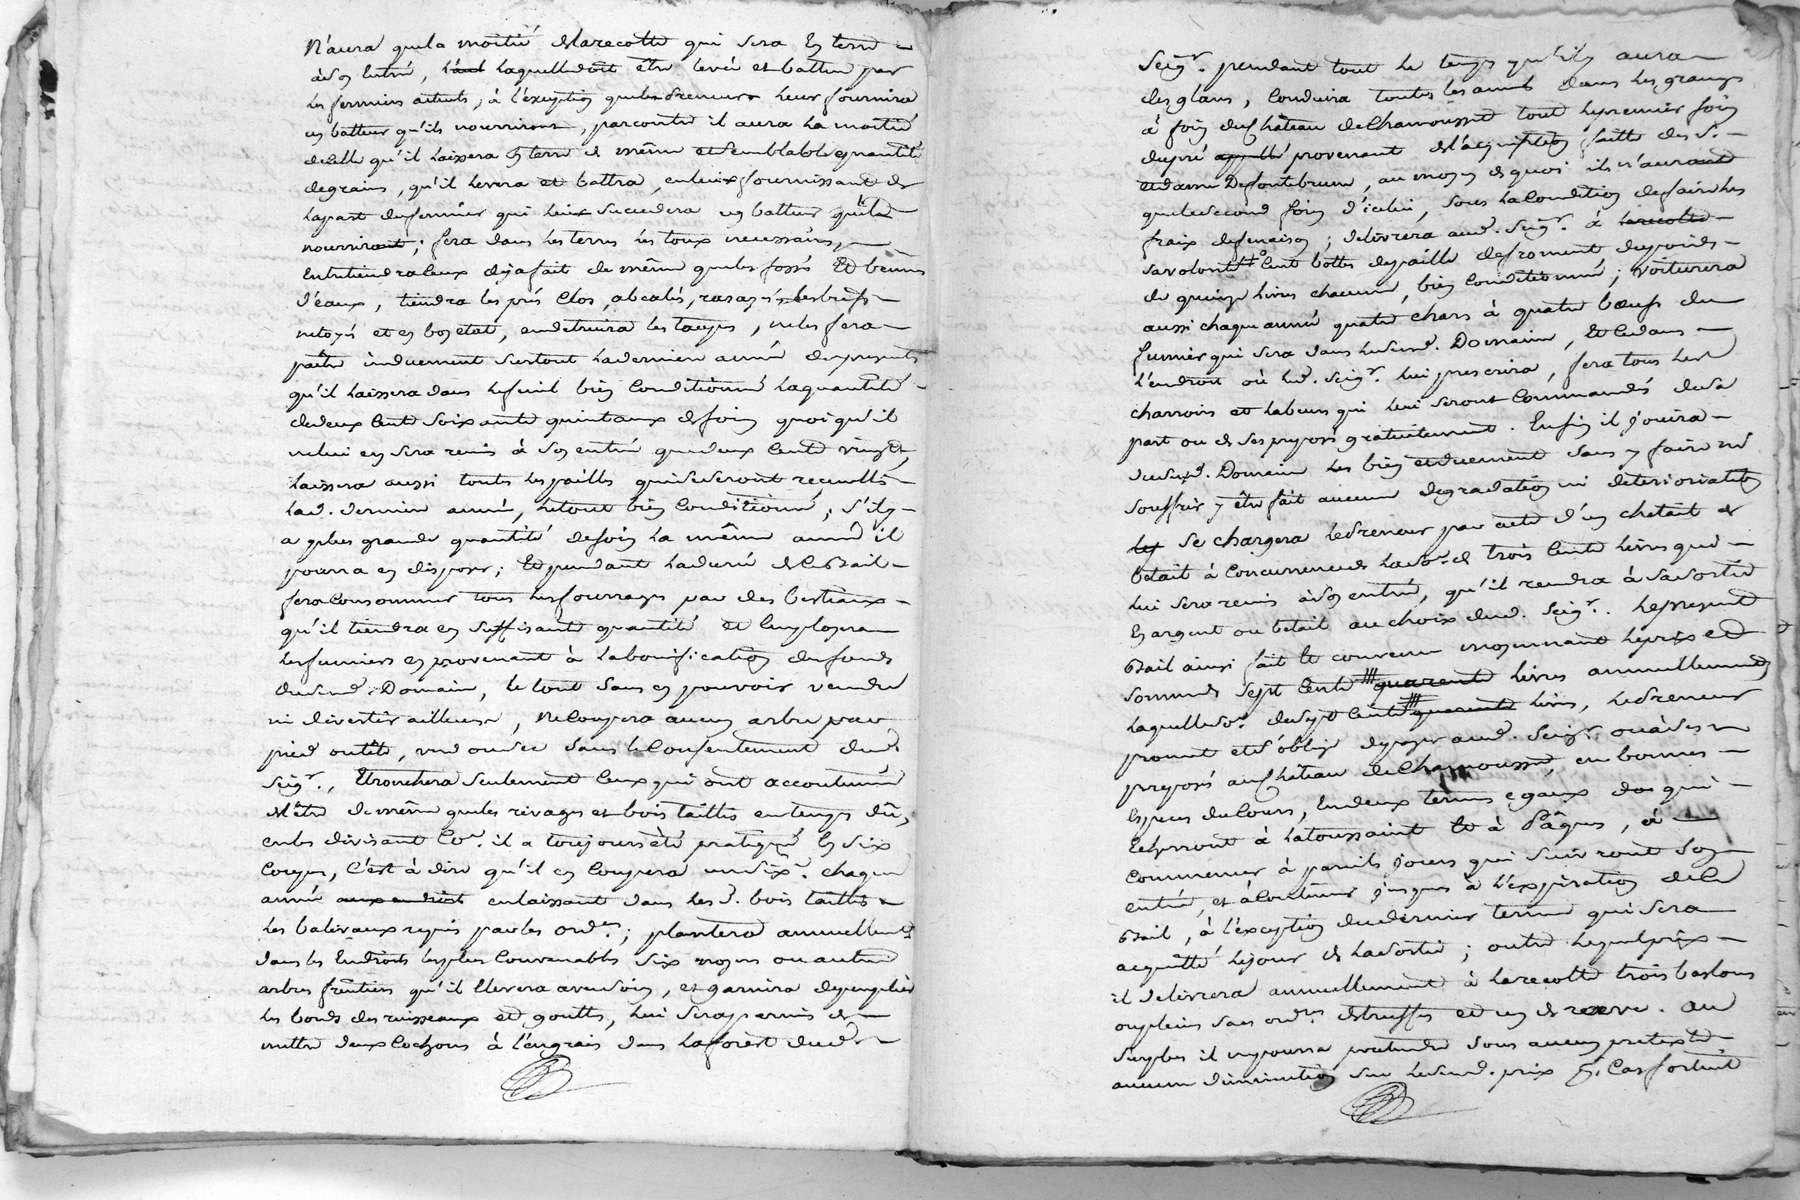 N'aura que la moitié de la recolte qui sera en terre
à son entré, laquelle doit être levée et battue par
les fermiers actuels, à l'exception que le preneur leur fournira
un batteur qu'ils nourriront, par contre il aura la moitié
de celle qu'il laissera en terre et même et semblable quantité
de grains, qu'il levera et battra, en lui fournissant de
la part du fermier qui lui succedera un batteur qu'il
nourrira; fera dans les terres les toux necessaires,
entretiendra ceux deja fait de même que les fossés et bennes
d'eaux, tiendra les prés clos, rasazés, les biefs
netoyés et en bon état, en detruira les taupes, ne les fera
paitre induement surtout la derniere année du present
qu'il laissera dans le fenil bien conditionné la quantité
de deux cent soixante quintaux de foin quoi qu'il
ne lui en sera remis à son entré que deux cent vingt,
laissera aussi toutes les pailles qui se seront recueillis
lad. derniere année, le tout bien conditionné; s'il y
a plus grande quantité de foin la même année il
pourra en disposer; et pendant la durée de ce Bail
fera consommer tous les fourrages par des bestiaux
qu'il tiendra en suffisante quantité et employera
les fumiers en provenant à la bonification du fonds
dud. Domaine, le tout sans en pouvoir vendre
ni divertir ailleurs, Ne coupera aucun arbre par
pied ou tête, verd ou sec sans le consentement dud.
Seigr., Etronchera seulement ceux qui ont accoutumé
de l'être de même que les rivages et bois taillis en temps dû,
en les divisant co.e il a toujours été pratiqué en six
coupes, c'est à dire qu'il en coupera un six.e chaque
année en laissant dans lesd. bois taillis
les balivaux requis par les ord.es; plantera annuellement
dans les Endroits les plus convenables six noyers ou autres
arbres fruitiers qu'il elevera avec soin, et garnira de peupliers
les bords des ruisseaux et gouttes, lui sera permis de
mettre deux cochons à l'engrais dans la forêt dud.
Seigr. pendant tout le temps qu'il y aura
des glans, conduira toutes les années dans les granges
à foin du château de Chamousset tout le premier foin
du pré provenant de l'acquisition faitte des Sr.
et dame Defontebrune, au moyen de quoi il n'aura
que le second foin d'icelui, sous la condition de faire les
fraix de fenaison; delivrera aud. Seigr. à
sa volonté cent bottes de paille de froment du poids
de quinze livres chacune, bien conditionné; voiturera
aussi chaque année quatre chars à quatre boeufs du
fumier qui sera dans led. Domaine, et ce dans
l'endroit où led. Seigr. lui prescrira, fera tous les
charrois et labeurs qui lui seront commandés de sa
part ou de ses preposés gratuitement. Enfin il jouira
dud. Domaine les bien et duement sans y faire ni
souffrir y être fait aucune degradation ni deterioriation
se chargera le Preneur par acte d'un chetail de
betail à concurrence de la so.e de trois cents livres qui
lui sera remis à son entré, qu'il rendra à sa sortie
en argent ou betail au choix dud. Seigr. le present
Bail ainsi fait et convenu moyennant le prix et
somme de sept cents quarente livres annuellement
laquelle so.e de sept cents quarente livres, le Preneur
promet et s'oblige de payer aud. Seigr. ou à ses
preposés au château de Chamousset, en bonnes
Especes de cours, en deux termes egaux dont qui
echerront à la toussaint et à Pâques, à
commencer à pareils jours qui suivront son
entré, et à continuer jusques à l'expiration de ce
Bail, à l'exception du dernier terme qui sera
acquitté le jour de la sortie; outre lequel prix
il delivrera annuellement à la recolte trois
de truffes et un de raves. Au
surplus il ne pourra pretendre sous aucun pretexte
aucune diminution sur led. prix p. cas fortuit